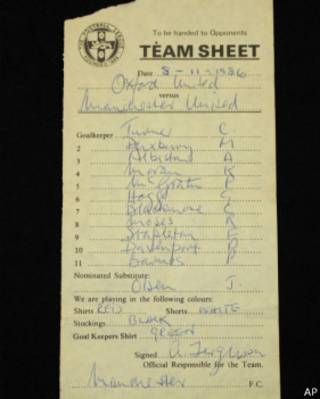 To be handed to Opponents
TEAM SHEET
Date 8-11-1986
Oxford United
versus
Manchester United
Goalkeeper Turner C
2 Duxbury M
3 Albiston A
4 Moran K
5 McGrath P
6 Hogg G
7 Blackmore C
8 Moses R
9 Stapleton F
10 Davenport P
11 Barnes P
Nominated Substitute:
Olsen J
We are playing in the following colours:
Shirts RED Shorts WHITE
Stockings BLACK
Goal Keepers Shirt GREEN
Signed A. Ferguson
Official Responsible for the Team.
Manchester F.C.
AP